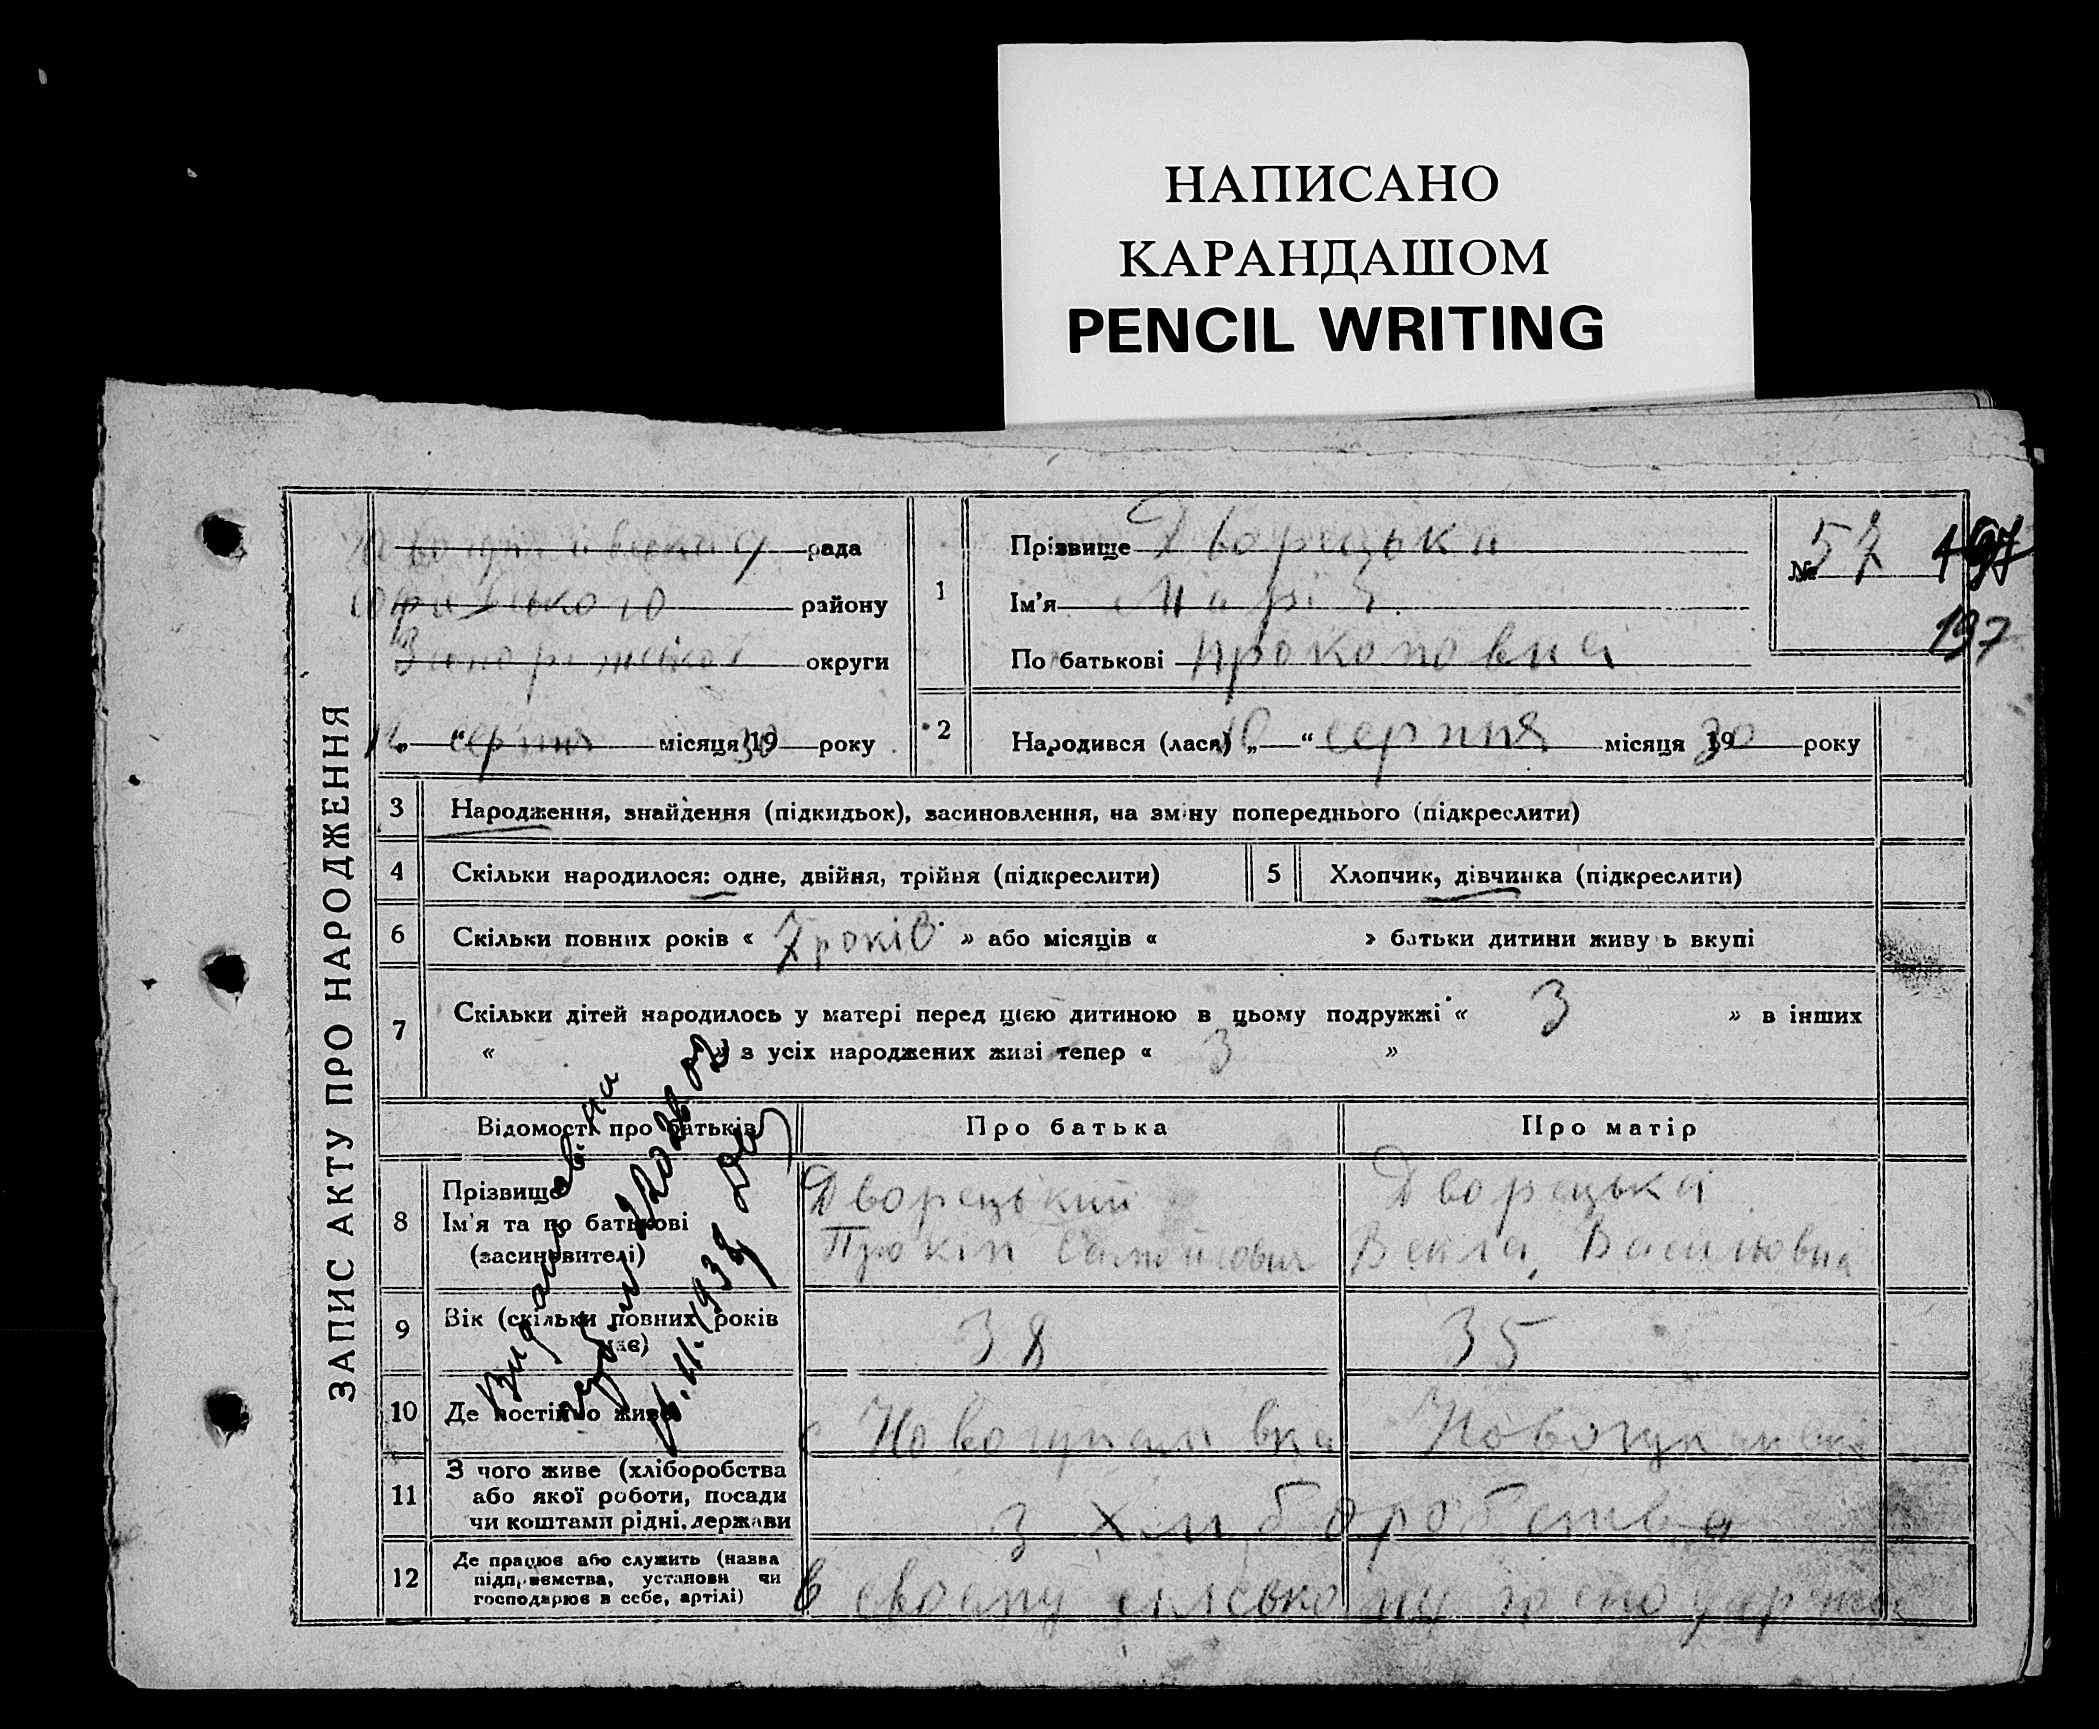 НАПИСАНО
КАРАНДАШОМ
PENCIL WRITING
ЗАПИС АКТУ ПРО НАРОДЖЕННЯ
рада
району
округи
серпня місяця 1930 року
1
Прізвище Дворецька
Ім'я Марія
По батькові Прокоповна
№ 57
197
197
2 Народився (лася) „10“ серпня місяця 1930 року
3 Народження, знайдення (підкидьок), засиновлення, на зміну попереднього (підкреслити)
4 Скільки народилося: одне, двійня, трійня (підкреслити)
5 Хлопчик, дівчинка (підкреслити)
6 Скільки повних років « 7 років » або місяців « » батьки дитини живуть вкупі
7 Скільки дітей народилось у матері перед цією дитиною в цьому подружжі « 3 » в інших
« » з усіх народжених живі тепер « 3 »
Відомості про батьків Про батька Про матір
8 Прізвище
Ім'я та по батькові
(засиновителі)
Дворецький
Прокіп Самойлович
Дворецька
Векла Василювна
9 Вік (скільки повних років має) 38 35
10 Де постійно живе с Новогупалівка Новогупалівка
11 З чого живе (хліборобства
або якої роботи, посади
чи коштами рідні, держави
з хліборобства
12 Де працює або служить (назва
підприємства, установи чи
господарює в себе, артілі)
в своему сільському